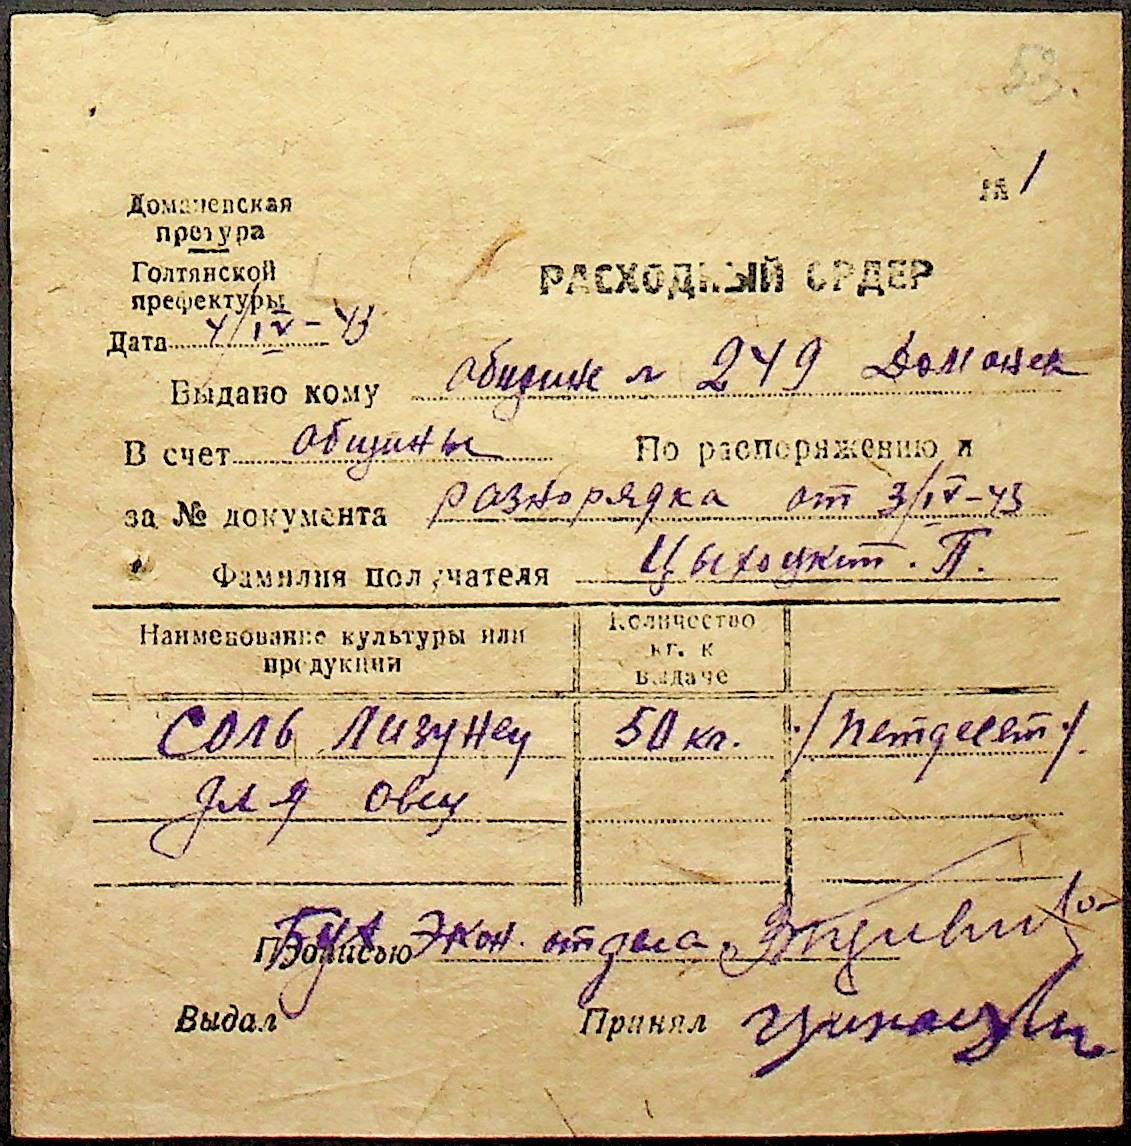 53.
№ 1
Доманевская
претура
Голтянской
префектуры
РАСХОДНЫЙ ОРДЕР
Дата 4/IV-43
Выдано кому общин № 249 Доманев
В счет общины По распоряжению и
за № документа разнорядка от 3/IV-43
Фамилия получателя П.
Наименование культуры или продукции
Количество кг. к выдаче
Соль Лизунец 50 кг. /Петдесет/.
для овец
Подписью Бух Экон. отдела
Выдал Принял